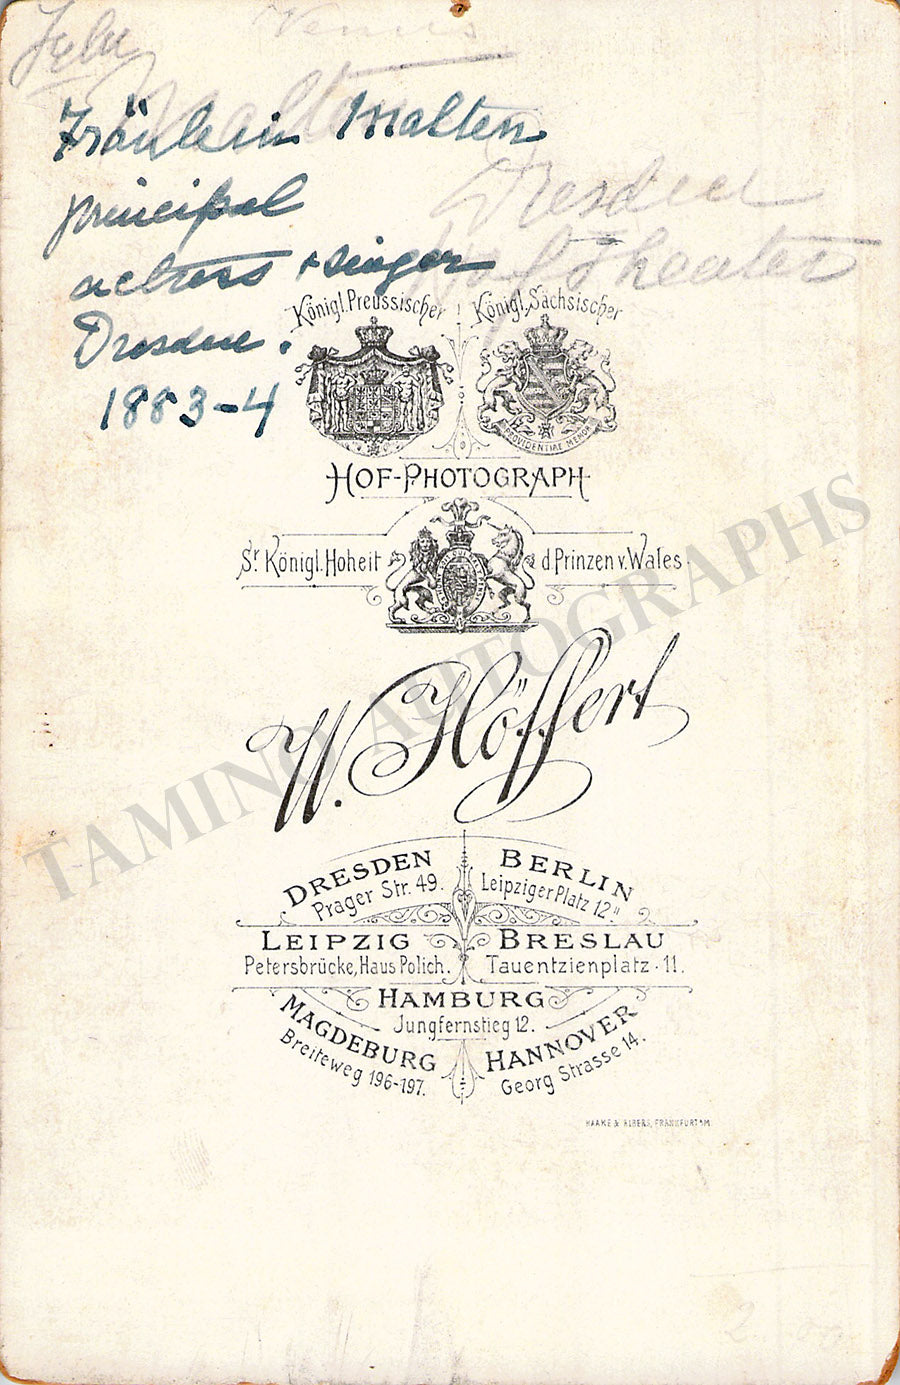 Venus
Malten
Fräulein Malten
principal
actress + singer
Dresden.
1883-4
Dresden
Hof Theater
Königl. Preussischer
Königl. Sächsischer
PROVIDENTIAE MEMOR
HOF-PHOTOGRAPH
Sr. Königl. Hoheit d Prinzen v. Wales.
W. Höffert
DRESDEN
Prager Str. 49.
BERLIN
Leipziger Platz 12"
LEIPZIG
Petersbrücke, Haus Polich.
BRESLAU
Tauentzienplatz. 11.
HAMBURG
Jungfernstieg 12.
MAGDEBURG
Breiteweg 196-197.
HANNOVER
Georg Strasse 14.
HAAKE & ALBERS, FRANKFURT a M.
TAMINO AUTOGRAPHS